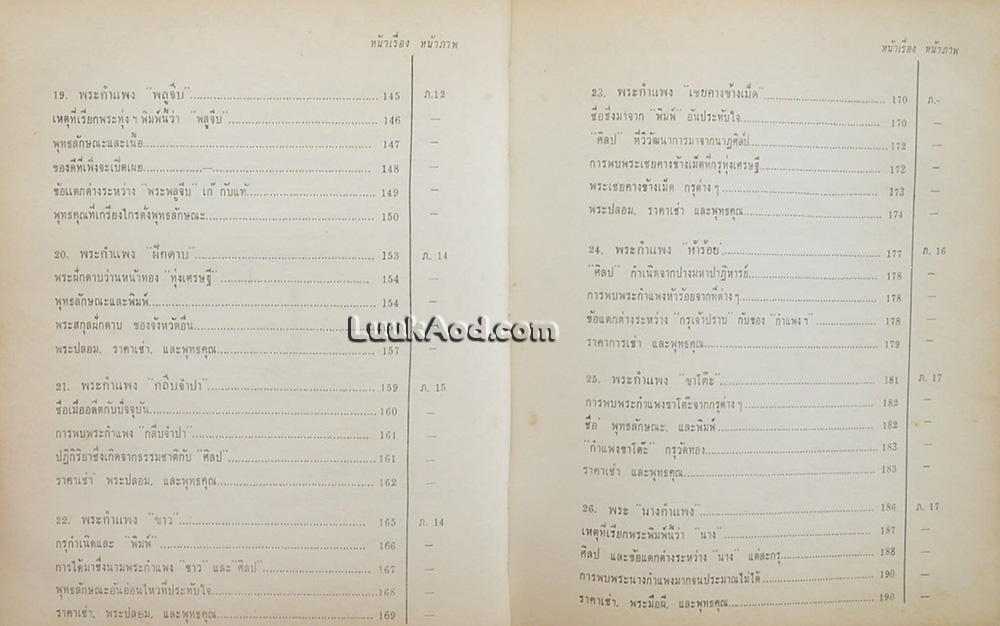 หน้าเรื่อง หน้าภาพ
19. พระกำแพง "พลูจีบ" 145 ภ.12
เหตุที่เรียกพระทุ่ง ฯ พิมพ์นี้ว่า "พลูจีบ" 146 —
พุทธลักษณะและเนื้อ 147 —
ของดีที่เพิ่งจะเปิดเผย 148 —
ข้อแตกต่างระหว่าง "พระพลูจีบ" เก๊ กับแท้ 149 —
พุทธคุณที่เกรียงไกรดังพุทธลักษณะ 150 —
20. พระกำแพง "ฝักดาบ" 153 ภ. 14
พระฝักดาบว่านหน้าทอง "ทุ่งเศรษฐี" 154 —
พุทธลักษณะและพิมพ์ 154 —
พระสกุลฝักดาบ ของจังหวัดอื่น
พระปลอม, ราคาเช่า, และพุทธคุณ 157 —
21. พระกำแพง "กลีบจำปา" 159 ภ. 15
ชื่อเมื่ออดีตกับปัจจุบัน 160 —
การพบพระกำแพง "กลีบจำปา" 161 —
ปฏิกิริยาซึ่งเกิดจากธรรมชาติกับ "ศิลป" 161 —
ราคาเช่า พระปลอม, และพุทธคุณ 162 —
22. พระกำแพง "ขาว" 165 ภ. 14
กรุกำเนิดและ "พิมพ์" 166 —
การได้มาซึ่งนามพระกำแพง "ขาว" และ "ศิลป" 167 —
พุทธลักษณะอันอ่อนไหวที่ประทับใจ 168 —
ราคาเช่า, พระปลอม, และพุทธคุณ 169 —
LuukAod.com
หน้าเรื่อง หน้าภาพ
23. พระกำแพง "เชยคางข้างเม็ด" 170 ภ.-
ชื่อซึ่งมาจาก "พิมพ์" อันประทับใจ 170 —
"ศิลป" ที่วิวัฒนาการมาจากนาฏศิลป์ 172 —
การพบพระเชยคางข้างเม็ดที่กรุทุ่งเศรษฐี 172 —
พระเชยคางข้างเม็ด กรุต่าง ๆ 173 —
พระปลอม, ราคาเช่า และพุทธคุณ 174 —
24. พระกำแพง "ห้าร้อย" 177 ภ. 16
"ศิลป" กำเนิดจากปางมหาปาฏิหารย์ 178 —
การพบพระกำแพงห้าร้อยจากที่ต่าง ๆ 178 —
ข้อแตกต่างระหว่าง "กรุเจ้าปราบ" กับของ "กำแพง ฯ" 178 —
ราคาการเช่า และพุทธคุณ 179 —
25. พระกำแพง "ขาโต๊ะ" 181 ภ. 17
การพบพระกำแพงขาโต๊ะจากกรุต่าง ๆ 182 —
ชื่อ พุทธลักษณะ, และพิมพ์ 182 —
"กำแพงขาโต๊ะ" กรุวัดทอง 183 —
ราคาเช่า และพุทธคุณ 183 —
26. พระ "นางกำแพง" 186 ภ. 17
เหตุที่เรียกพระพิมพ์นี้ว่า "นาง" 187 —
ศิลป และข้อแตกต่างระหว่าง "นาง" แต่ละกรุ 188 —
การพบพระนางกำแพงมากจนประมาณไม่ได้ 190 —
ราคาเช่า, พระมือผี, และพุทธคุณ 190 —